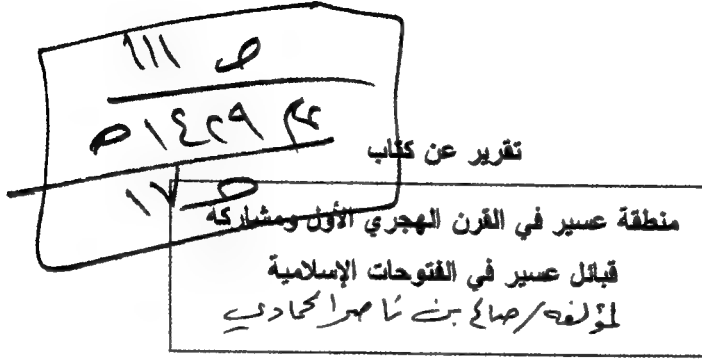 ص ١١١
١٤٢٩ ه
ص ١٧
تقرير عن كتاب
منطقة عسير في القرن الهجري الأول ومشاركه
قبائل عسير في الفتوحات الإسلامية
لمؤلفه/صالح بن ناصر الحمادي